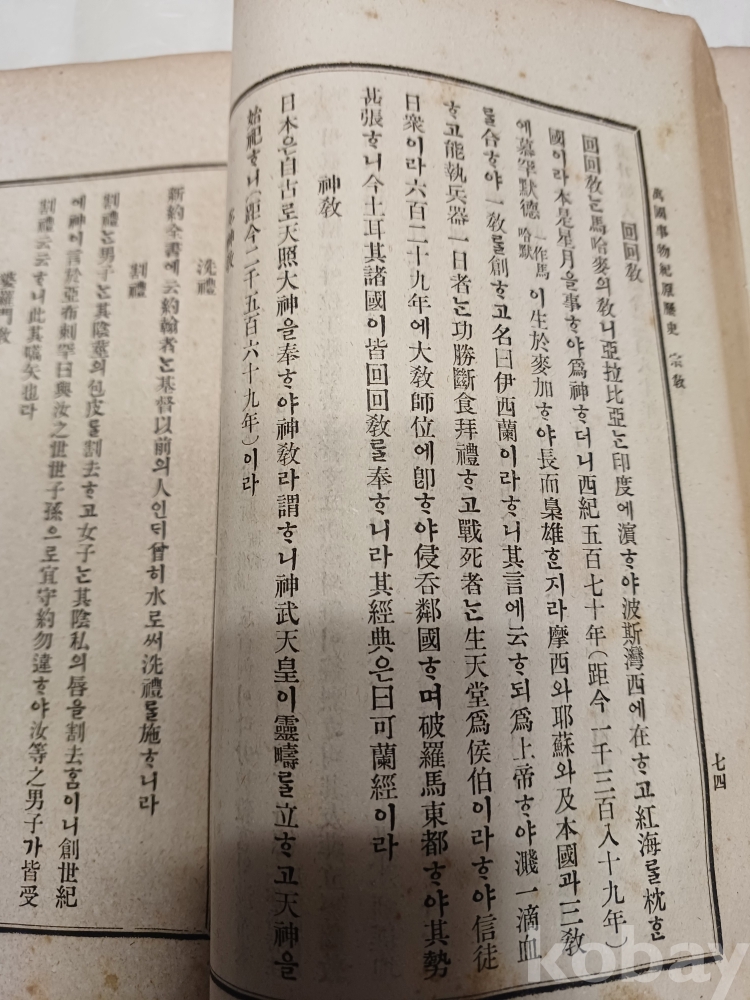 萬國事物紀原歷史 宗敎
七四
回回敎
回回敎는馬哈麥의敎니亞拉比亞는印度에濱ᄒᆞ야波斯灣西에在ᄒᆞ고紅海를枕ᄒᆞᆫ
國이라本是星月을事ᄒᆞ야爲神ᄒᆞ더니西紀五百七十年(距今一千三百八十九年)
에慕罕默德一作馬哈默이生於麥加ᄒᆞ야長而梟雄ᄒᆞᆫ지라摩西와耶蘇와及本國과三敎
를合ᄒᆞ야一敎를創ᄒᆞ고名曰伊西蘭이라ᄒᆞ니其言에云ᄒᆞ되爲上帝ᄒᆞ야濺一滴血
ᄒᆞ고能執兵器一日者는功勝斷食拜禮ᄒᆞ고戰死者는生天堂爲侯伯이라ᄒᆞ야信徒
日衆이라六百二十九年에大敎師位에卽ᄒᆞ야侵呑鄰國ᄒᆞ며破羅馬東都ᄒᆞ야其勢
甚張ᄒᆞ니今土耳其諸國이皆回回敎를奉ᄒᆞ니라其經典은曰可蘭經이라
神敎
日本은自古로天照大神을奉ᄒᆞ야神敎라謂ᄒᆞ니神武天皇이靈疇를立ᄒᆞ고天神을
始祀ᄒᆞ니(距今二千五百六十九年)이라
神敎
洗禮
新約全書에云約翰者는基督以前의人인ᄃᆡ曾히水로써洗禮를施ᄒᆞ니라
割禮
割禮는男子는其陰莖의包皮를割去ᄒᆞ고女子는其陰私의脣을割去홈이니創世紀
에神이言於亞布剌罕曰與汝之世世子孫으로宜守約勿違ᄒᆞ야汝等之男子가皆受
割禮云云ᄒᆞ니此其嚆矢也라
婆羅門敎
kobay